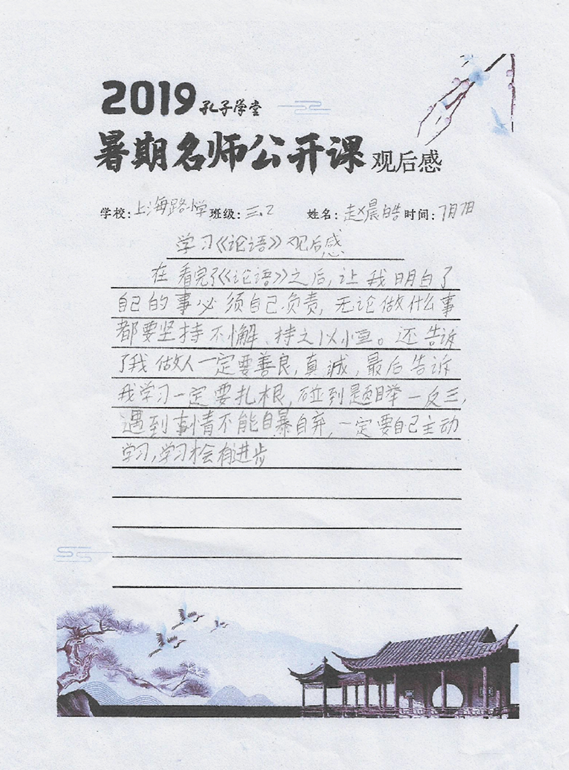 2019孔子学堂
暑期名师公开课观后感
学校:上海路小学班级:三.2 姓名:赵晨皓时间:7月7日
学习《论语》观后感
在看完了《论语》之后,让我明白了
自己的事必须自己负责,无论做什么事
都要坚持不懈、持之以恒。还告诉
了我做人一定要善良,真诚,最后告诉
我学习一定要扎根,碰到题举一反三,
遇到事情不能自暴自弃,一定要自己主动
学习,学习才会有进步